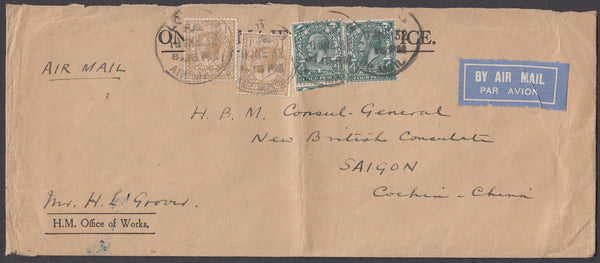 ON
CE.
AIR MAIL
BY AIR MAIL
PAR AVION
H. B. M. Consul-General
New British Consulate
SAIGON
Cochin-China
Mr. H.
H.M. Office of Works.